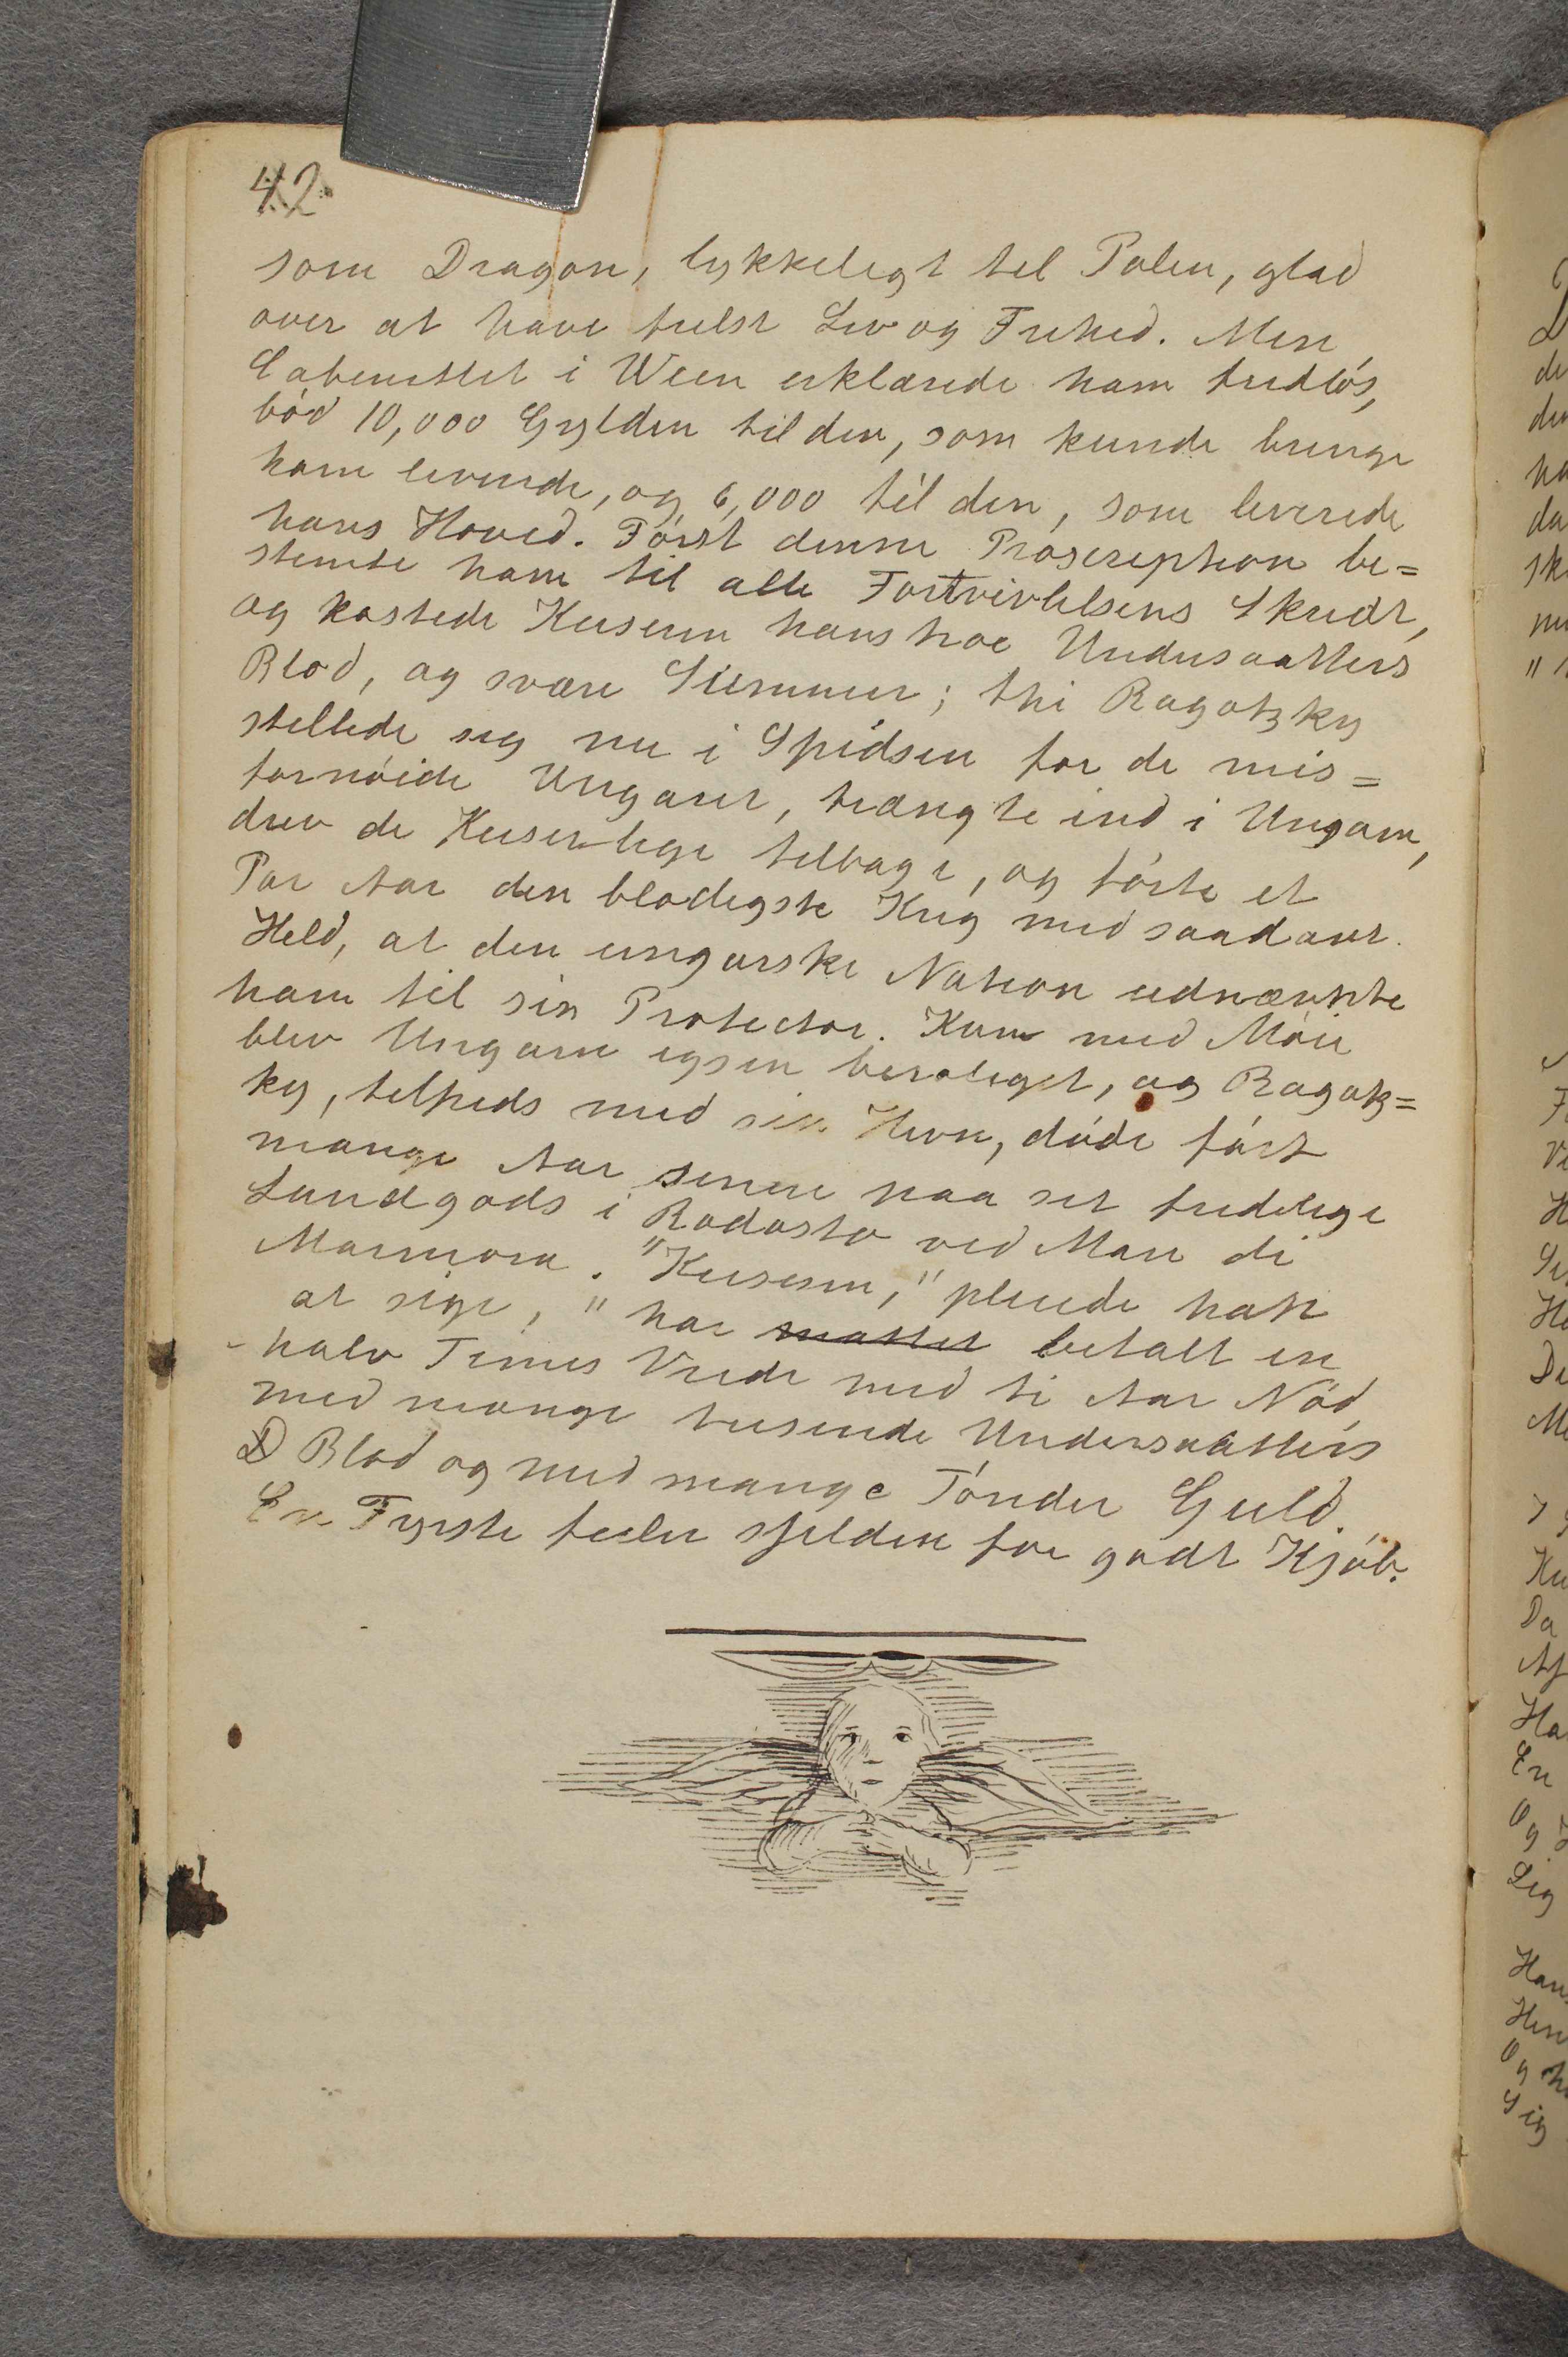 42
som Dragon, lykkeligt til Polen, glad
over at have frelst Liv og Frihed. Men
Cabinettet i Wien erklærede ham fredløs,
bød 10,000 Gylden til den, som kunde bringe
ham levende, og 6,000 til den, som leverede
hans Hoved. Først denne Proscription be=
stemte ham til alle Fortvivlelsens Skridt,
og kostede Keiseren hans troe Undersaatters
Blod, og svære Summer; thi Ragotzky
stillede sig nu i Spidsen for de mis=
fornøiede Ungarer, trængte ind i Ungarn,
drev de Keiserlige tilbage, og førte et
Par Aar den blodigste Krig med saadant
Held, at den ungarske Nation udnævnte
ham til sin Protector. Kun med Møie
blev Ungarn igjen beroliget, og Ragotz=
ky, tilfreds med sin Hevn, døde først
mange Aar senere paa sit fredelige
Landgods i Rodosto ved Mare di
Marmora. "Keiseren," pleiede han
at sige, "har maattet betalt en
halv Times Vrede med ti Aar Nød,
med mange tusende Undersaatters
D Blod og med mange Tønder Guld.
En Fyrste feiler sjelden for godt Kjøb.